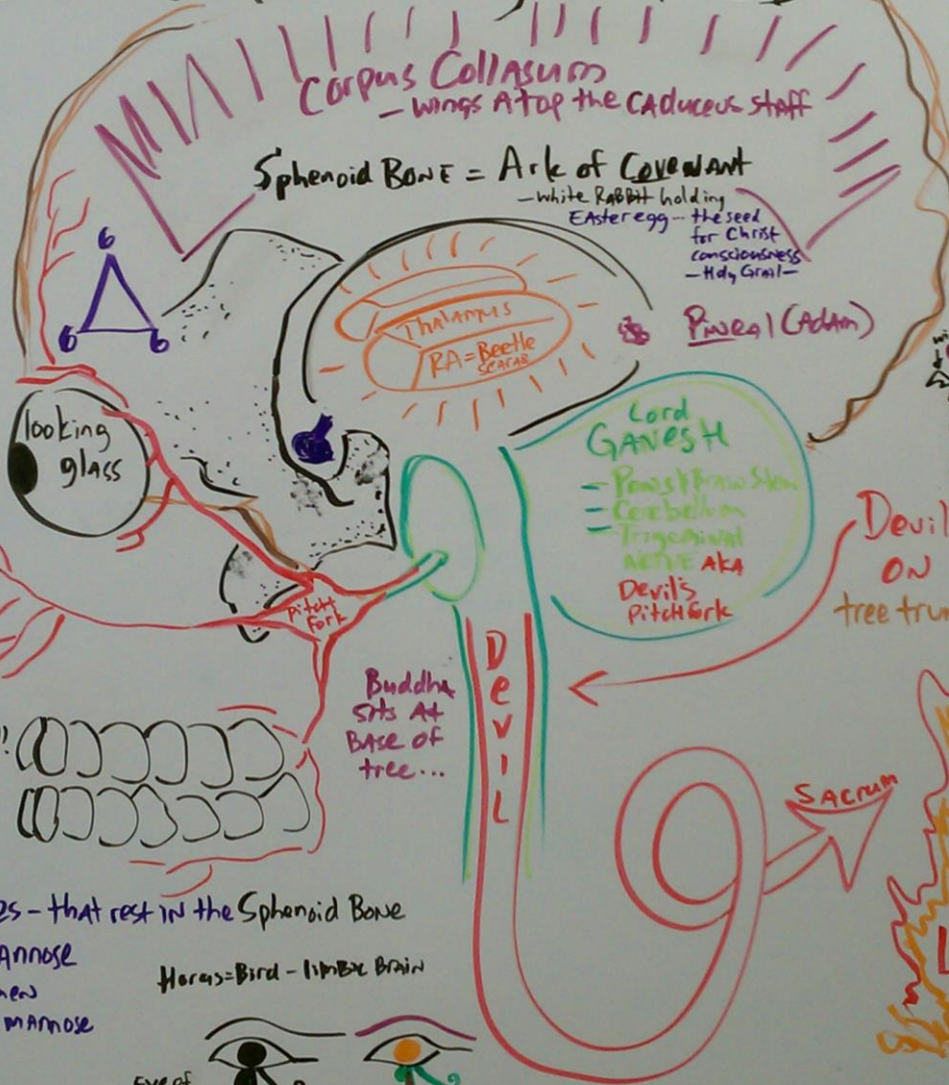 Corpus Collasum
- wings Atop the CADuceus staff
Sphenoid BONE = Ark of CoveNANT
- white RaBBit holding
EAster egg -- the seed
for Christ
consciousness
- Holy Grail -
6
6
6
THalAmus
RA = Beetle
SCARAB
Pineal (ADAM)
looking
glass
Lord
GANESH
- Pons & Brain Stem
- Cerebellum
- Trigeminal
NERVE AKA
Devil's
PitchFork
Devil
ON
tree tru
Pitch
fork
Devil
Buddha
sits At
BASE of
tree...
SACRUM
es - that rest IN the Sphenoid BONE
ANNOSE
men
mANNose
Horus = Bird - limBic BRAIN
Eye of